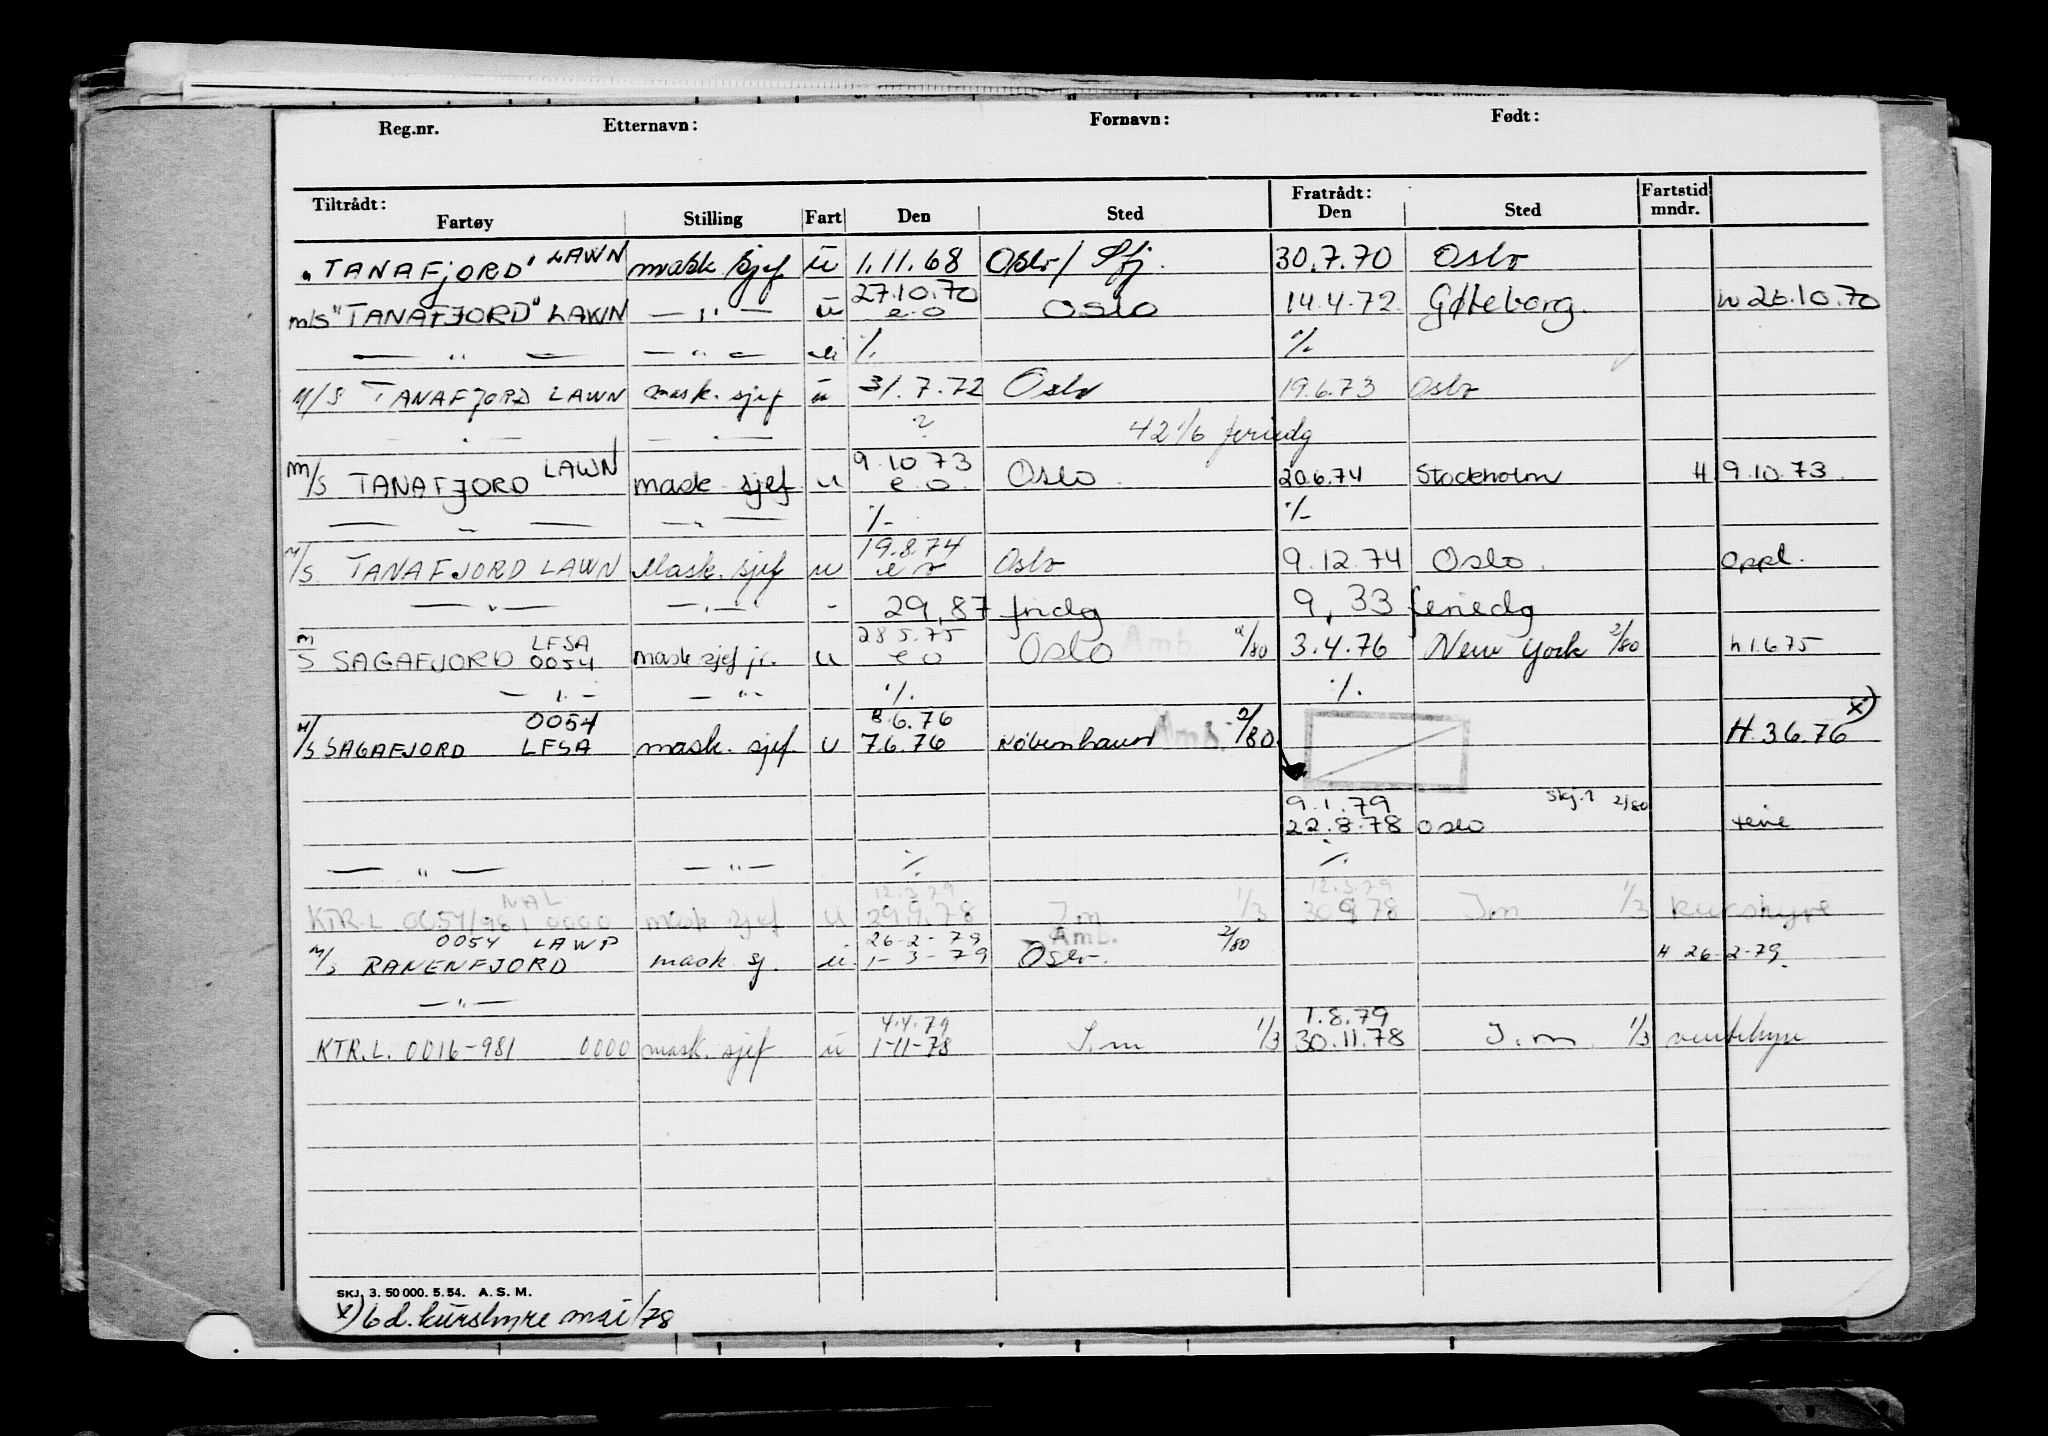 Reg.nr. Etternavn: Fornavn: Født:
Tiltrådt: Fratrådt: Fartstid
Fartøy Stilling Fart Den Sted Den Sted mndr.
"TANAFJORD" LAWN mask sjef ü 1.11.68 Oslo/ Sfj. 30.7.70 Oslo
27.10.70
m/s "TANAFJORD" LAWN — " — ü e.o Oslo 14.4.72 Gøteborg. h 26.10.70
— " — — " — ü ·/. ·/.
M/S TANAFJORD LAWN mask. sjef ü 31.7.72 Oslo 19.6.73 Oslo
— " — — " — ? 42 1/6 feriedg
9.10.73
m/s TANAFJORD LAWN mask. sjef u e.o. Oslo. 20.6.74 Stockholm H 9.10.73.
— " — — " — ·/. ·/.
19.8.74
M/S TANAFJORD LAWN Mask. sjef u e o Oslo 9.12.74 Oslo. Oppl.
— " — — " — - 29,87 fridg 9,33 feriedg
LFSA 28.5.75
m/s SAGAFJORD 0054 mask sjef jr. u e o Oslo Amb. 2/80 3.4.76 New York 2/80 h 1.6.75
— " — — " — ·/. ·/.
0054 8.6.76 x)
M/S SAGAFJORD LFSA mask. sjef u 7.6.76 København Amb. 2/80 H. 3.6.76
9.1.79 skj.1 2/80
22.8.78 Oslo ferie
— " — — " — ·/. ·/.
NAL 12.3.79 12.3.79
KTR.L 0054/981 0000 mask sjef u 29.9.78 J.m 1/3 30.9.78 J.m 1/3 kurshyre
0054 LAWP 26-2-79 Amb. 2/80
M/S RANENFJORD mask. sj. ü 1-3-79 Oslo. H 26-2-79.
— " —
4.4.79 1.8.79
KTR.L. 0016-981 0000 mask. sjef ü 1-11-78 J.m 1/3 30.11.78 J.m. 1/3 ventehyre
SKJ. 3. 50 000. 5. 54. A. S. M.
x) 6 d. kurshyre mai/78